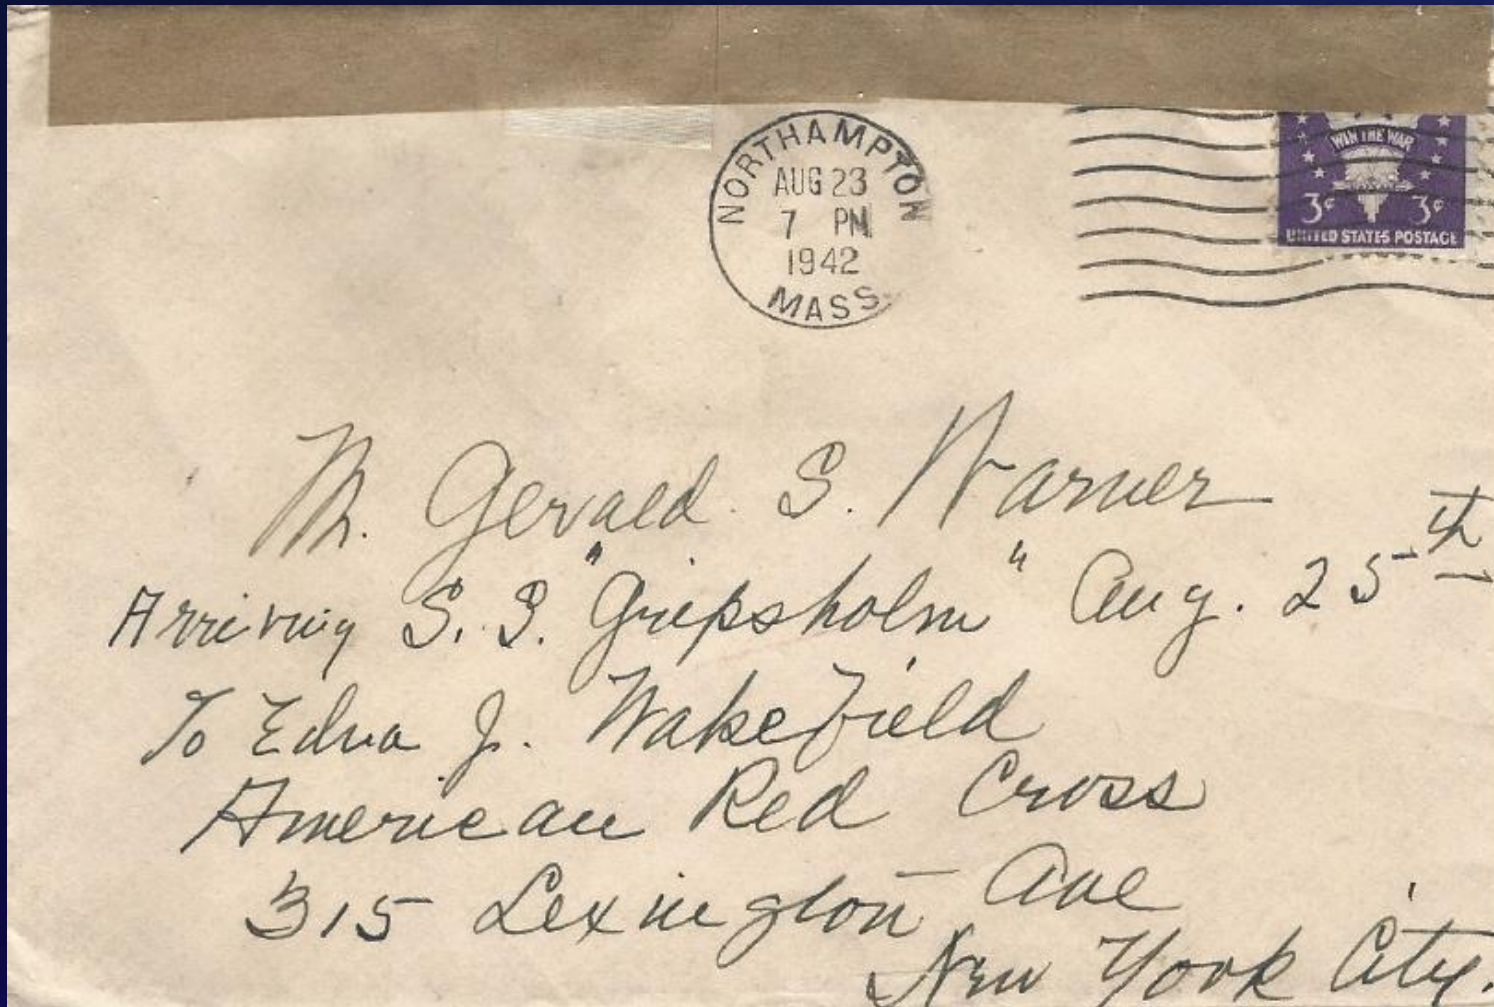 NORTHAMPTON
AUG 23
7 PM
1942
MASS.
WIN THE WAR
3¢ 3¢
UNITED STATES POSTAGE
Mr. Gerald S. Warner
Arriving S. S. "Gripsholm" Aug. 25th
To Edna J. Wakefield
American Red Cross
315 Lexington Ave
New York City.